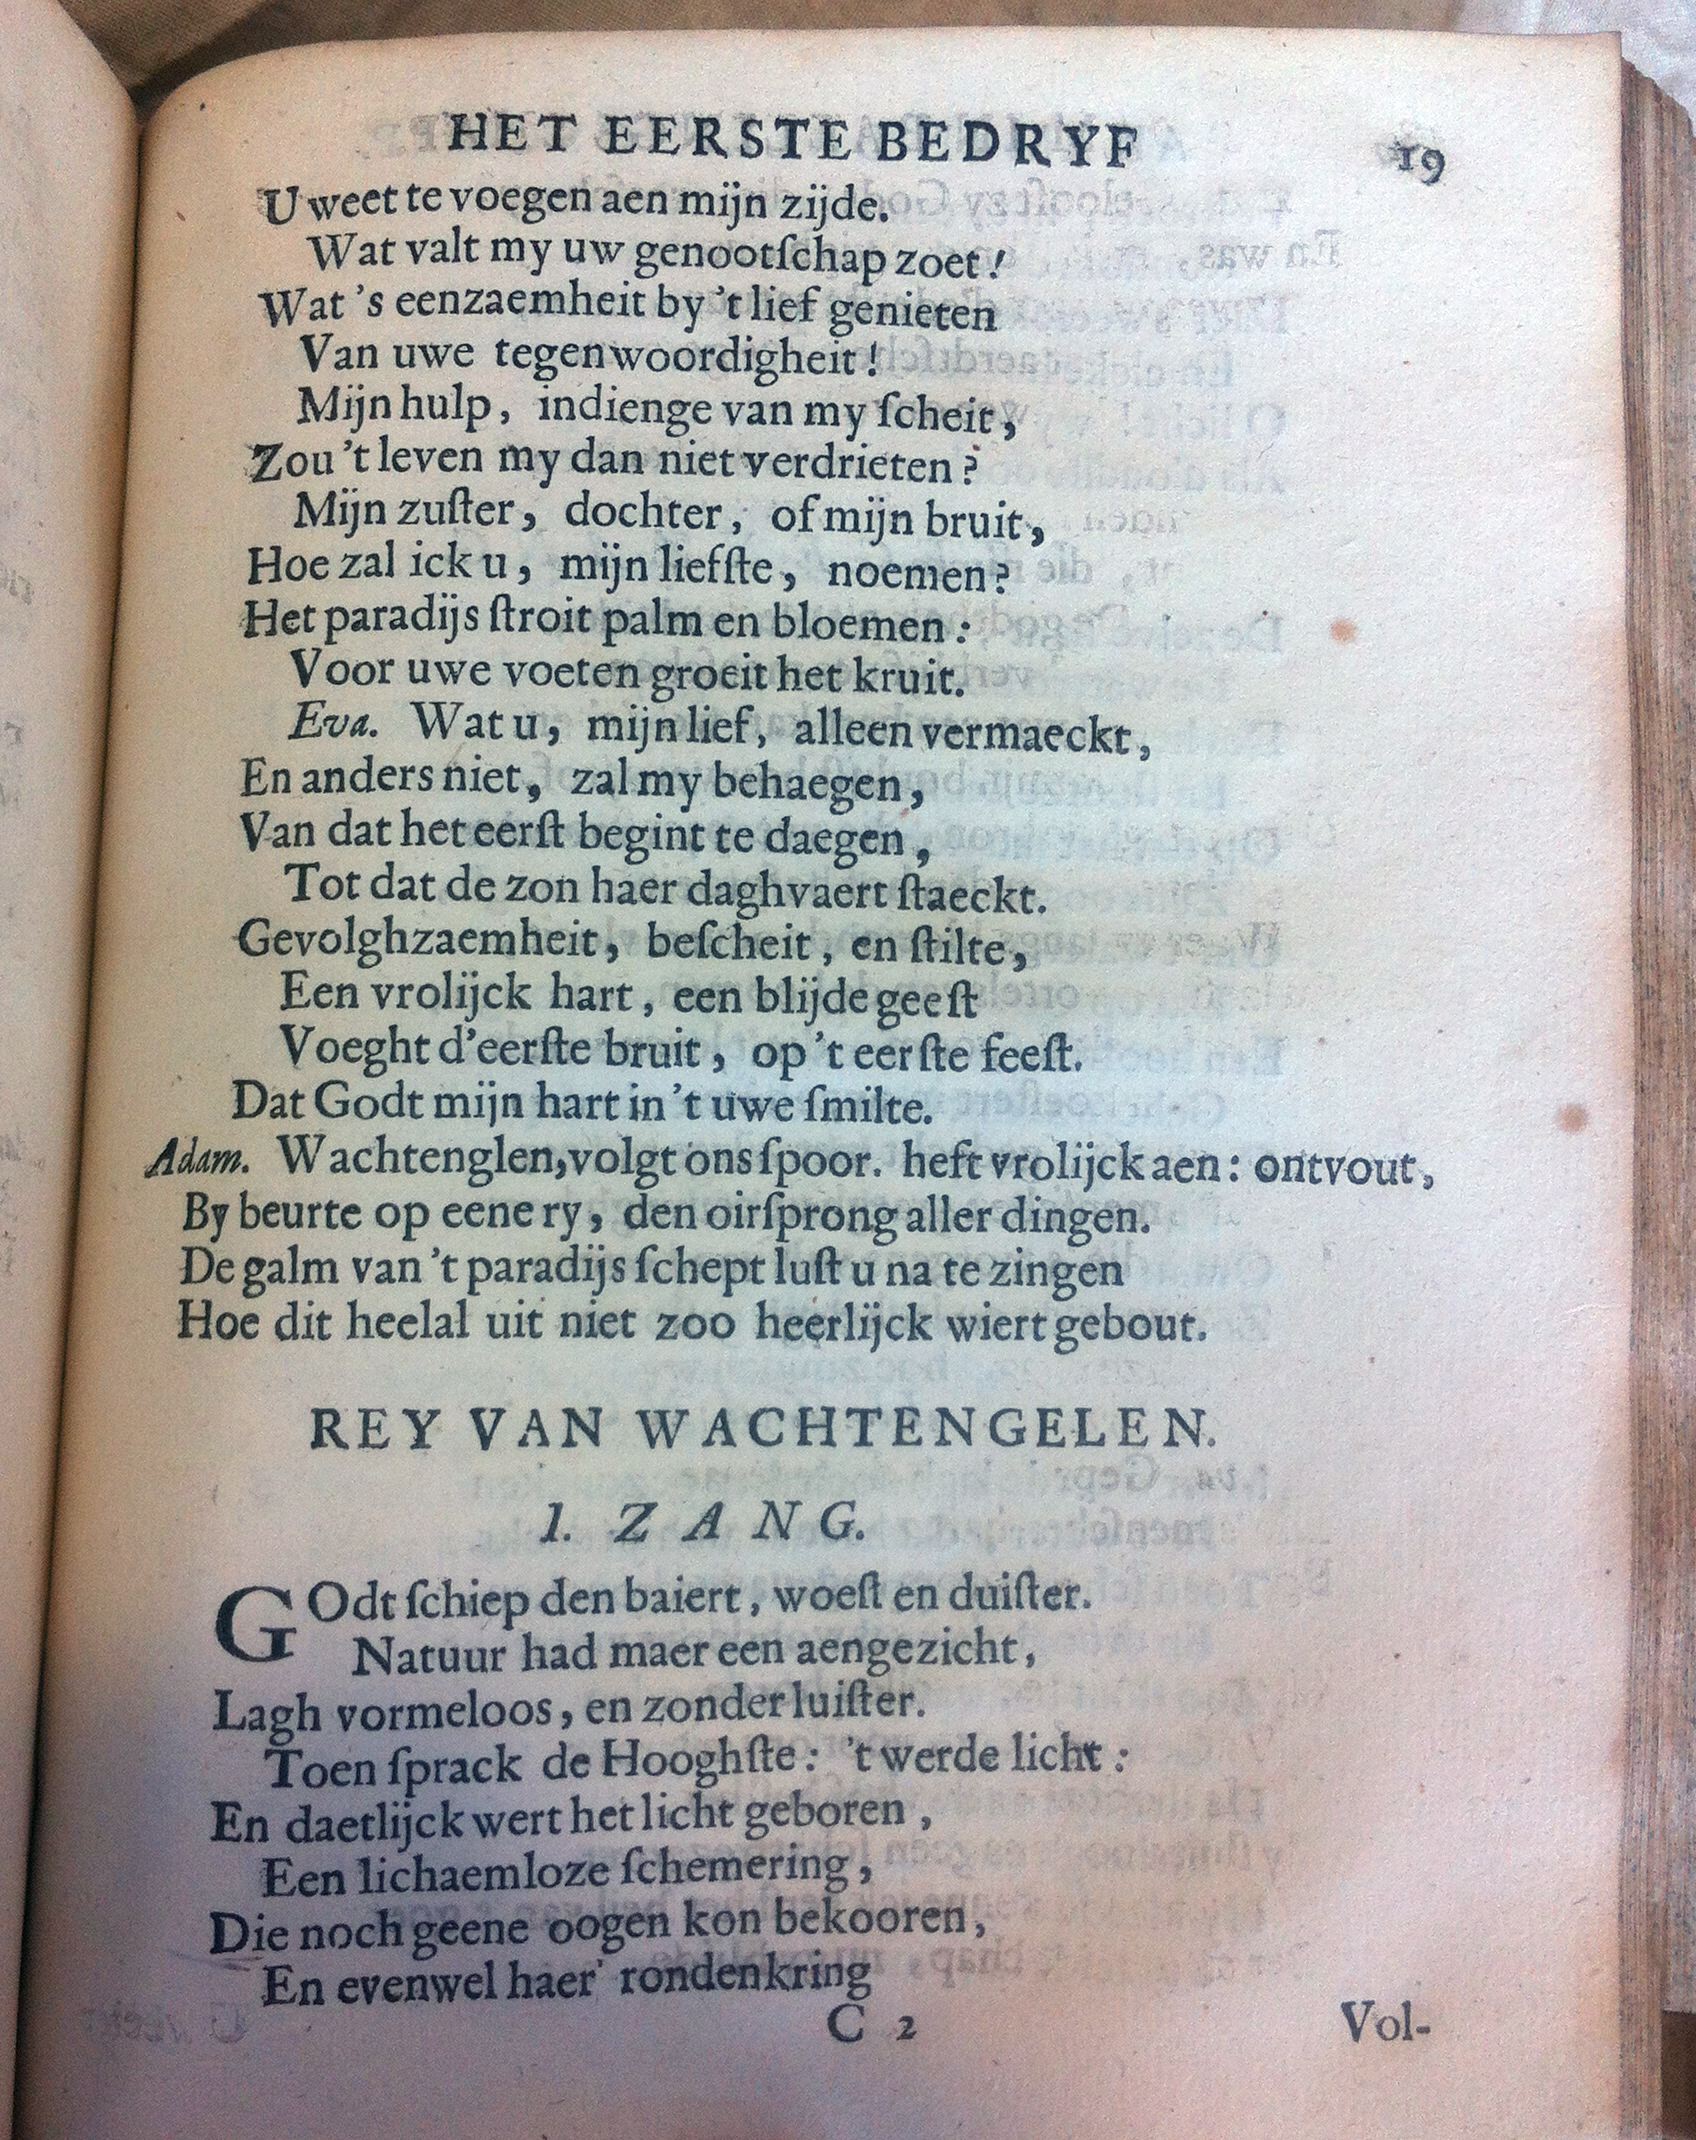 HET EERSTE BEDRYF 19
U weet te voegen aen mijn zijde.
Wat valt my uw genootſchap zoet!
Wat 's eenzaemheit by 't lief genieten
Van uwe tegenwoordigheit!
Mijn hulp, indienge van my ſcheit,
Zou 't leven my dan niet verdrieten?
Mijn zuſter, dochter, of mijn bruit,
Hoe zal ick u, mijn liefſte, noemen?
Het paradijs ſtroit palm en bloemen:
Voor uwe voeten groeit het kruit.
Eva. Wat u, mijn lief, alleen vermaeckt,
En anders niet, zal my behaegen,
Van dat het eerſt begint te daegen,
Tot dat de zon haer daghvaert ſtaeckt.
Gevolghzaemheit, beſcheit, en ſtilte,
Een vrolijck hart, een blijde geeſt
Voeght d'eerſte bruit, op 't eerſte feeſt.
Dat Godt mijn hart in 't uwe ſmilte.
Adam. Wachtenglen, volgt ons ſpoor. heft vrolijck aen: ontvout,
By beurte op eene ry, den oirſprong aller dingen.
De galm van 't paradijs ſchept luſt u na te zingen
Hoe dit heelal uit niet zoo heerlijck wiert gebout.
REY VAN WACHTENGELEN.
I. ZANG.
GOdt ſchiep den baiert, woeſt en duiſter.
Natuur had maer een aengezicht,
Lagh vormeloos, en zonder luiſter.
Toen ſprack de Hooghſte: 't werde licht:
En daetlijck wert het licht geboren,
Een lichaemloze ſchemering,
Die noch geene oogen kon bekooren,
En evenwel haer' rondenkring
C 2 Vol-